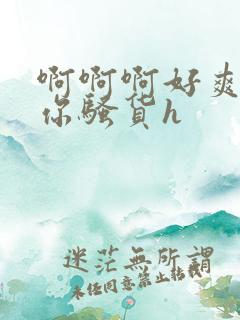 啊啊啊好爽
你骚货h
迷茫無所謂
未经同意禁止转载